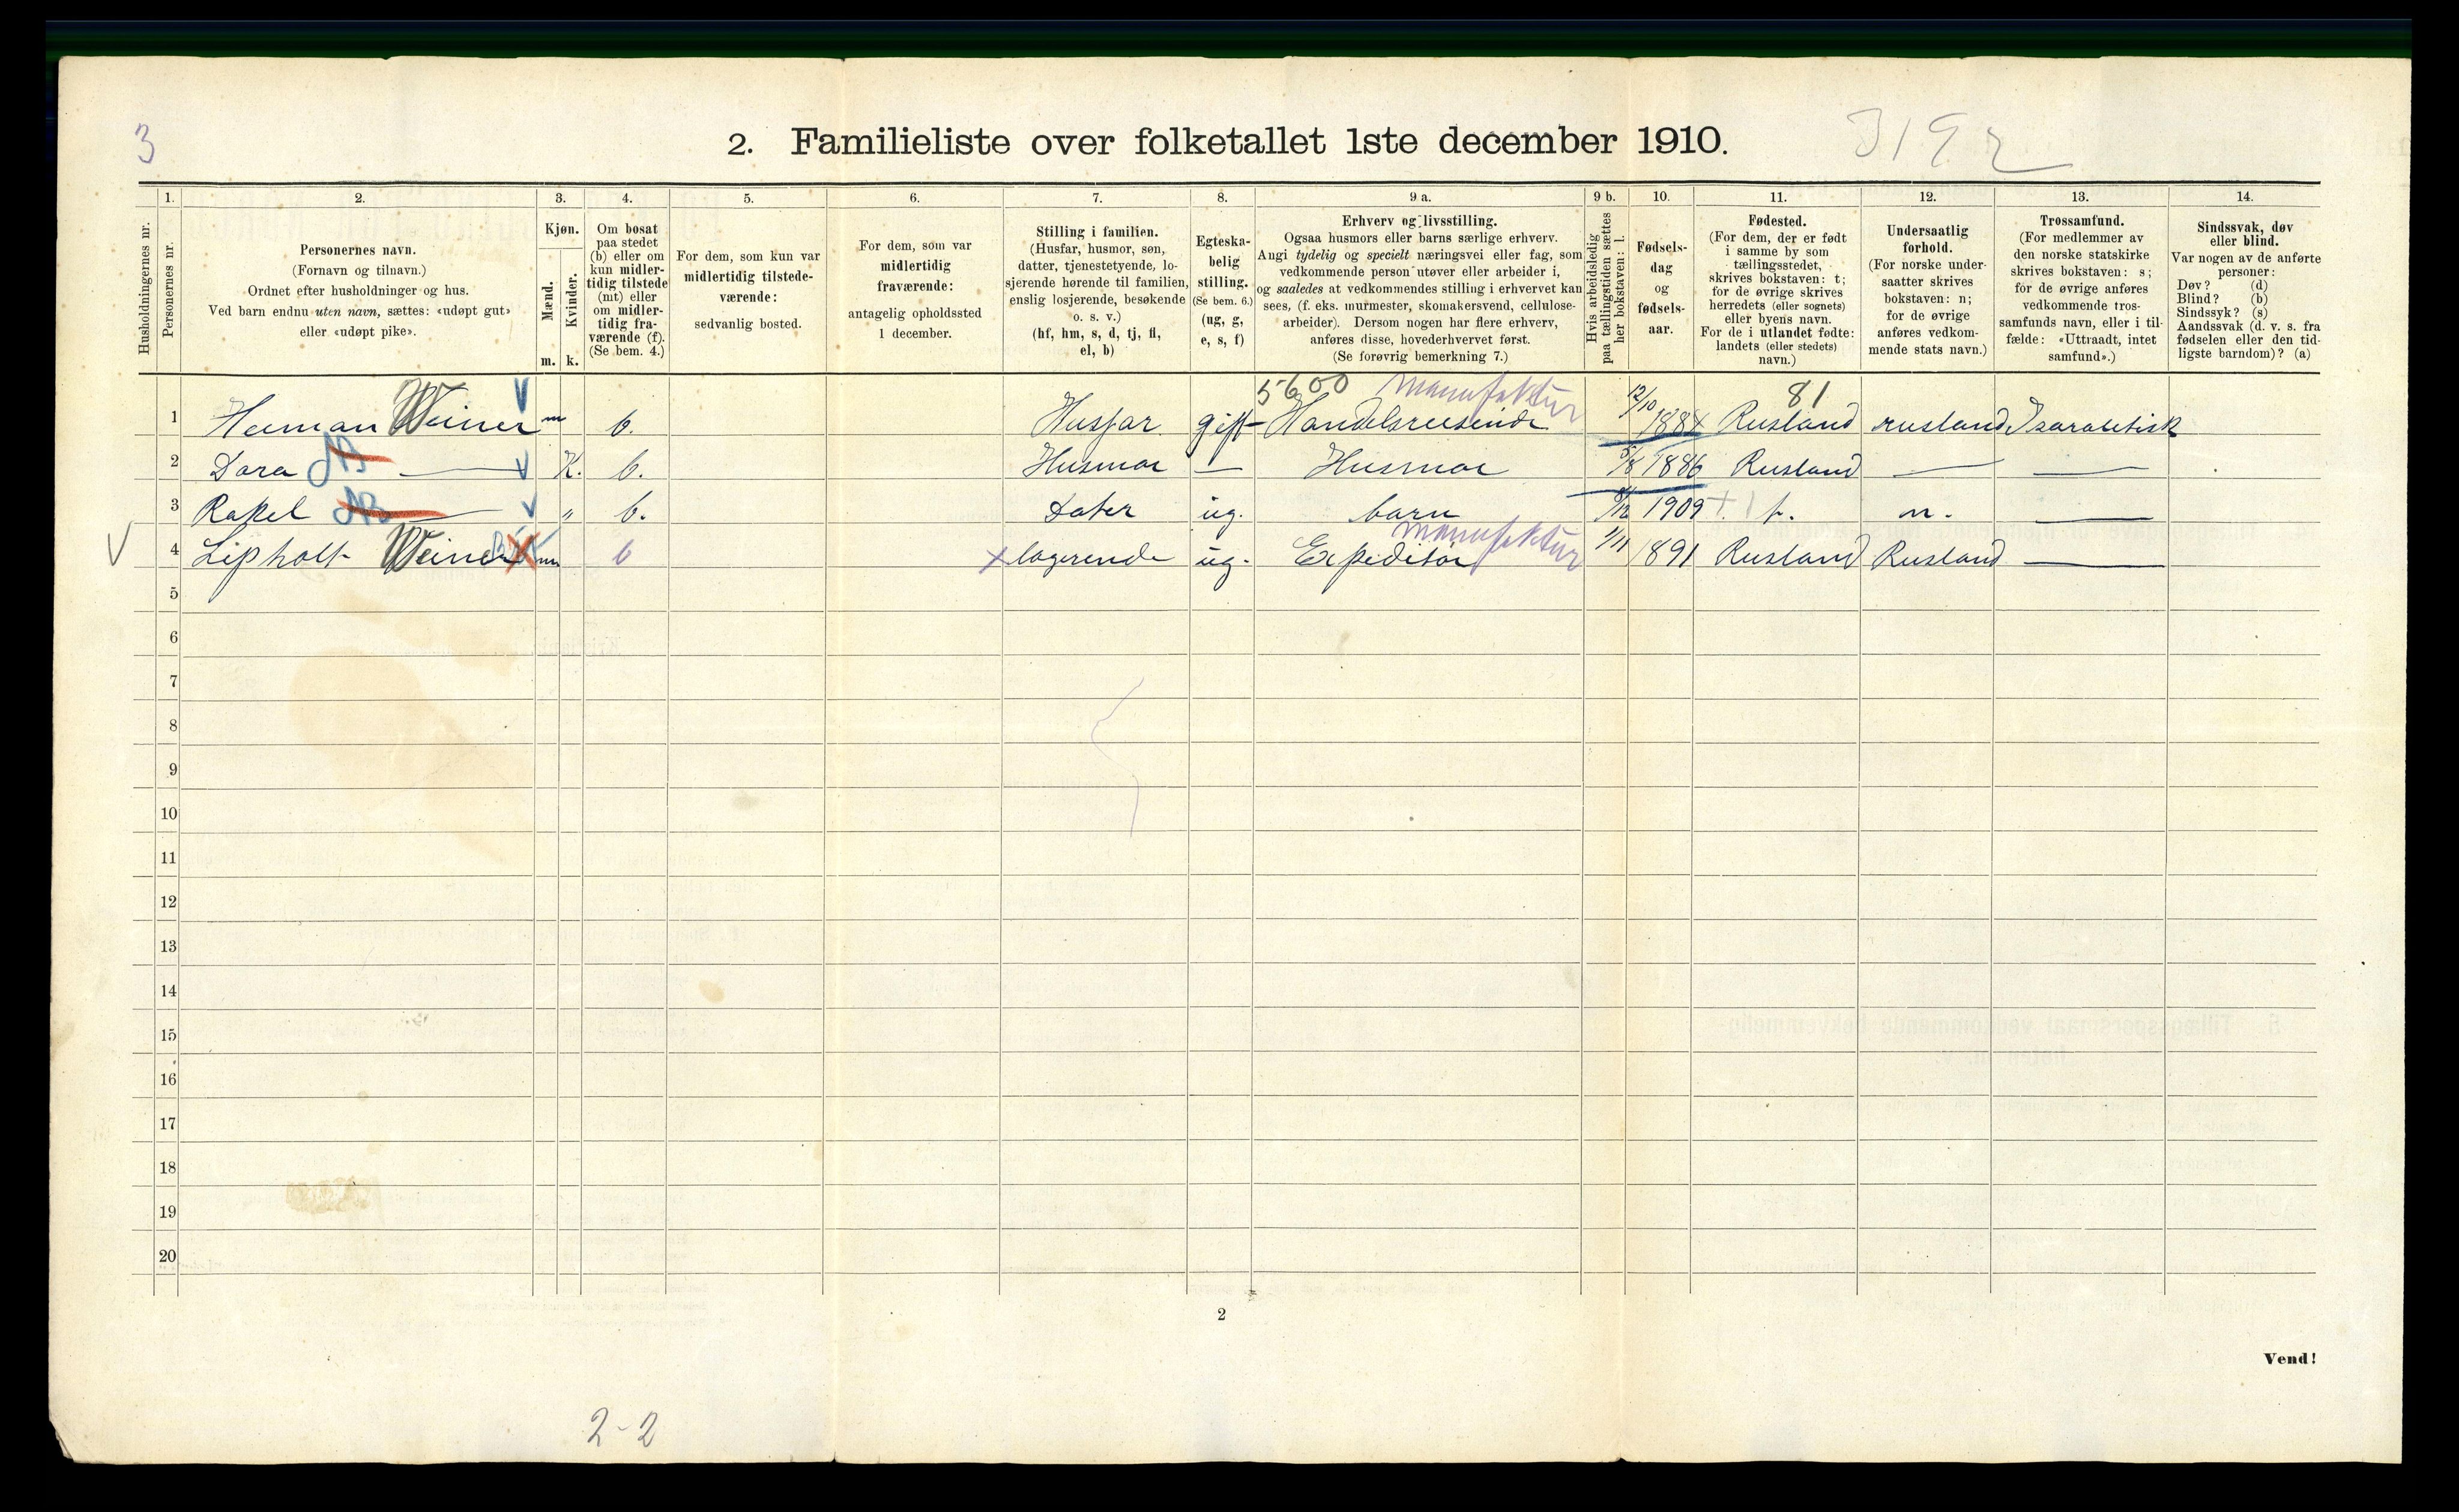 3
2. Familieliste over folketallet 1ste december 1910.
3192
Husholdningernes nr.
1.
Personernes nr.
2.
Personernes navn.
(Fornavn og tilnavn.)
Ordnet efter husholdninger og hus.
Ved barn endnu uten navn, sættes: «udøpt gut»
eller «udøpt pike».
3.
Kjøn.
Mænd.
Kvinder.
m. k.
4.
Om bosat
paa stedet
(b) eller om
kun midler-
tidig tilstede
(mt) eller
om midler-
tidig fra-
værende (f).
(Se bem. 4.)
5.
For dem, som kun var
midlertidig tilstede-
værende:
sedvanlig bosted.
6.
For dem, som var
midlertidig
fraværende:
antagelig opholdssted
1 december.
7.
Stilling i familien.
(Husfar, husmor, søn,
datter, tjenestetyende, lo-
sjerende hørende til familien,
enslig losjerende, besøkende
o. s. v.)
(hf, hm, s, d, tj, fl,
el, b)
8.
Egteska-
belig
stilling.
(Se bem. 6.)
(ug, g,
e, s, f)
9 a.
Erhverv og livsstilling.
Ogsaa husmors eller barns særlige erhverv.
Angi tydelig og specielt næringsvei eller fag, som
vedkommende person utøver eller arbeider i,
og saaledes at vedkommendes stilling i erhvervet kan
sees, (f. eks. murmester, skomakersvend, cellulose-
arbeider). Dersom nogen har flere erhverv,
anføres disse, hovederhvervet først.
(Se forøvrig bemerkning 7.)
9 b.
Hvis arbeidsledig
paa tællingstiden sættes
her bokstaven: l.
10.
Fødsels-
dag
og
fødsels-
aar.
11.
Fødested.
(For dem, der er født
i samme by som
tællingsstedet,
skrives bokstaven: t;
for de øvrige skrives
herredets (eller sognets)
eller byens navn.
For de i utlandet fødte:
landets (eller stedets)
navn.)
12.
Undersaatlig
forhold.
(For norske under-
saatter skrives
bokstaven: n;
for de øvrige
anføres vedkom-
mende stats navn.)
13.
Trossamfund.
(For medlemmer av
den norske statskirke
skrives bokstaven: s;
for de øvrige anføres
vedkommende tros-
samfunds navn, eller i til-
fælde: «Uttraadt, intet
samfund».)
14.
Sindssvak, døv
eller blind.
Var nogen av de anførte
personer:
Døv? (d)
Blind? (b)
Sindssyk? (s)
Aandssvak (d. v. s. fra
fødselen eller den tid-
ligste barndom)? (a)
5600 manufaktur 81
1 Herman Weiner m b. Husfar. gift Handelsreisende 12/10 1884 Rusland rusland Isaraletisk
2 Dora — K. b. Husmor — Husmor 5/8 1886 Rusland — —
3 Rakel — „ b. Dater ug. barn 1909 t. n. —
manufaktur
4 Lipholt Weiner m b x logerende ug. Expeditør 1/11 1891 Rusland Rusland —
5
6
7
8
9
10
11
12
13
14
15
16
17
18
19
20
2
Vend!
2-2